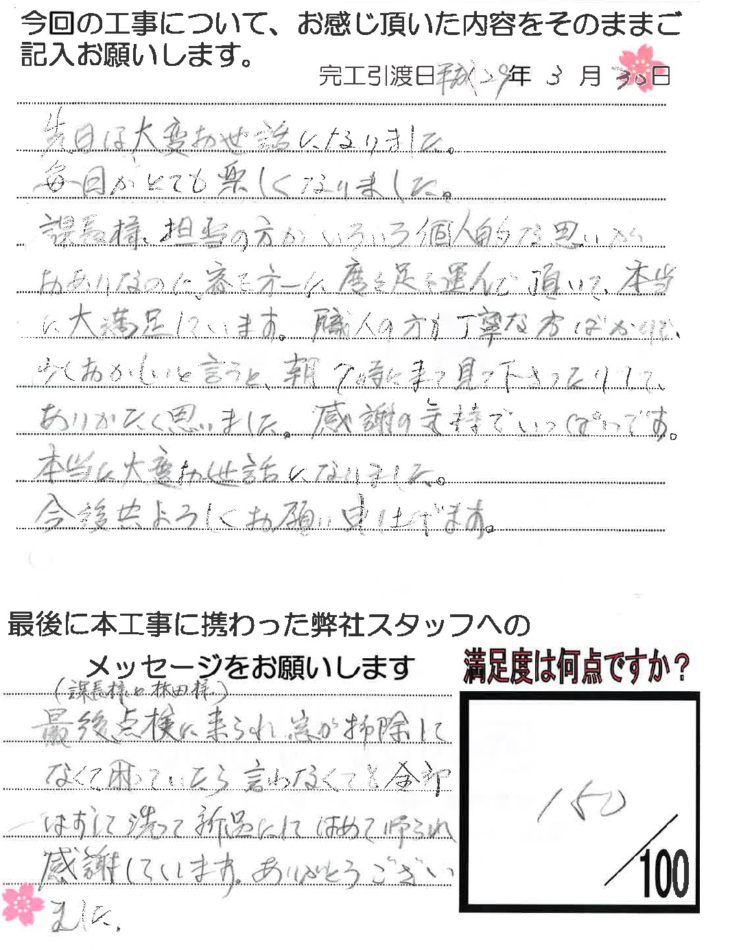 今回の工事について、お感じ頂いた内容をそのままご
記入お願いします。
完工引渡日平成29年 3月 30日
先日は大変お世話になりました。
毎日がとても楽しくなりました。
課長様、担当の方がいろいろ個人的な思いが
おありなのに、客を第一に度々足を運んで頂いて、本当
に大満足しています。職人の方が丁寧な方ばかりで、
少しおかしいと言うと、朝7時に来て見て下さったりして、
ありがたく思いました。感謝の気持でいっぱいです。
本当に大変お世話になりました。
今後共よろしくお願い申し上げます。
最後に本工事に携わった弊社スタッフへの
メッセージをお願いします
満足度は何点ですか？
(課長様と林田様)
最後点検に来られ窓が掃除して
なくて困っていたら言わなくても全部
はずして洗って新品にしてはめて帰られ
感謝しています。ありがとうござい
ました。
150
/100